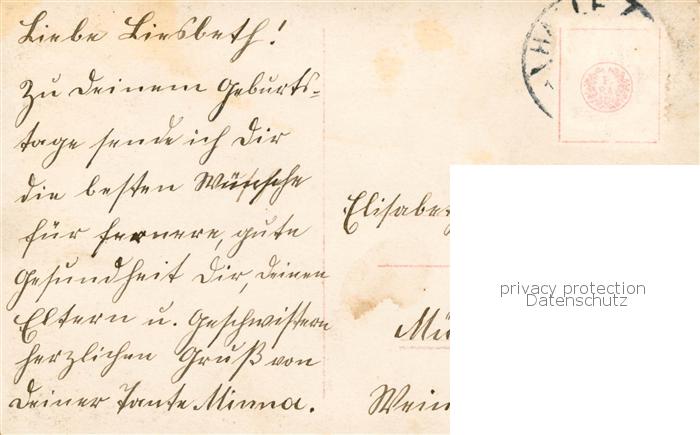 Liebe Liesbeth!
Zu Deinem Geburts-
tage sende ich Dir
die besten Wünsche
für fernere, gute
Gesundheit Dir, Deinen
Eltern u. Geschwistern
herzlichen Gruß von
Deiner Tante Minna.
HALL
Elisabe
Mü
Wein
privacy protection
Datenschutz